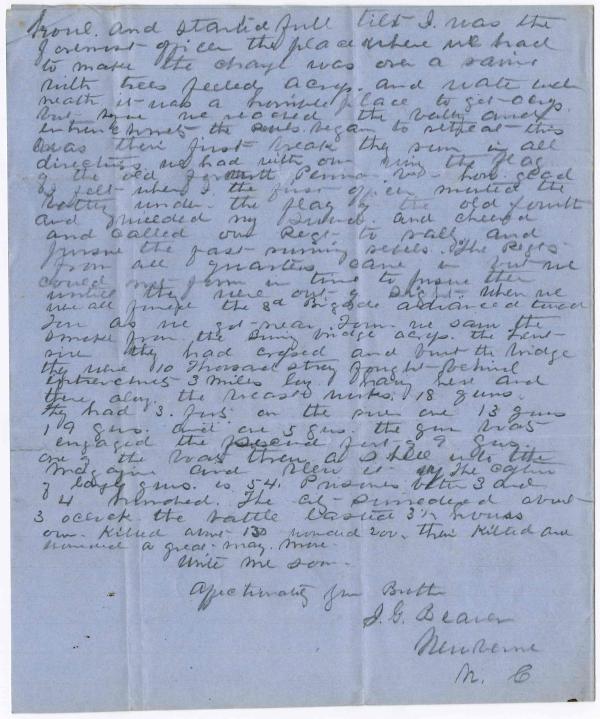 and started full tilt I was the
foremost officer the place where we had
to make the charge was over a
with trees felled across and water
neath it was a horrible place to get across
but we reached the battery and
entrenchments the rebels began to retreat this
was their first break they run in all
directions we had with our the flag
of the old Penna how glad
I felt when I the first officer mounted the
battery under the flag of the old fourth
and my Sword and cheered
and called our Regt to rally and
pursue the fast running rebels. The Regts
from all quarters came in but we
could not form in time to pursue them
untill they were out of sight. when we
were all formed the 3d Brigade advanced toward
as we got near we saw the
smoke from the bridge across the Trent
river they had crossed and burnt the bridge
they were 10 Thousand strong fought behind
entrenchments 3 miles long many here and
there along the breast works. 18 guns.
They had 3. forts on the river one 13 guns
1 9 guns. and one 5 guns. the gun boats
engaged the second fort of 9 guns.
one of the boats threw a shell into the
magazine and blew it up The
of large guns. is 54. Prisoners betn 3 and
4 hundred. The city surrendered about
3 oclock the battle lasted 3½ hours
our Killed about 130 wounded 200. their Killed and
wounded a great many more.
Write me soon
Affectionately your Brother
J. G. Beaver
Newberne
N. C